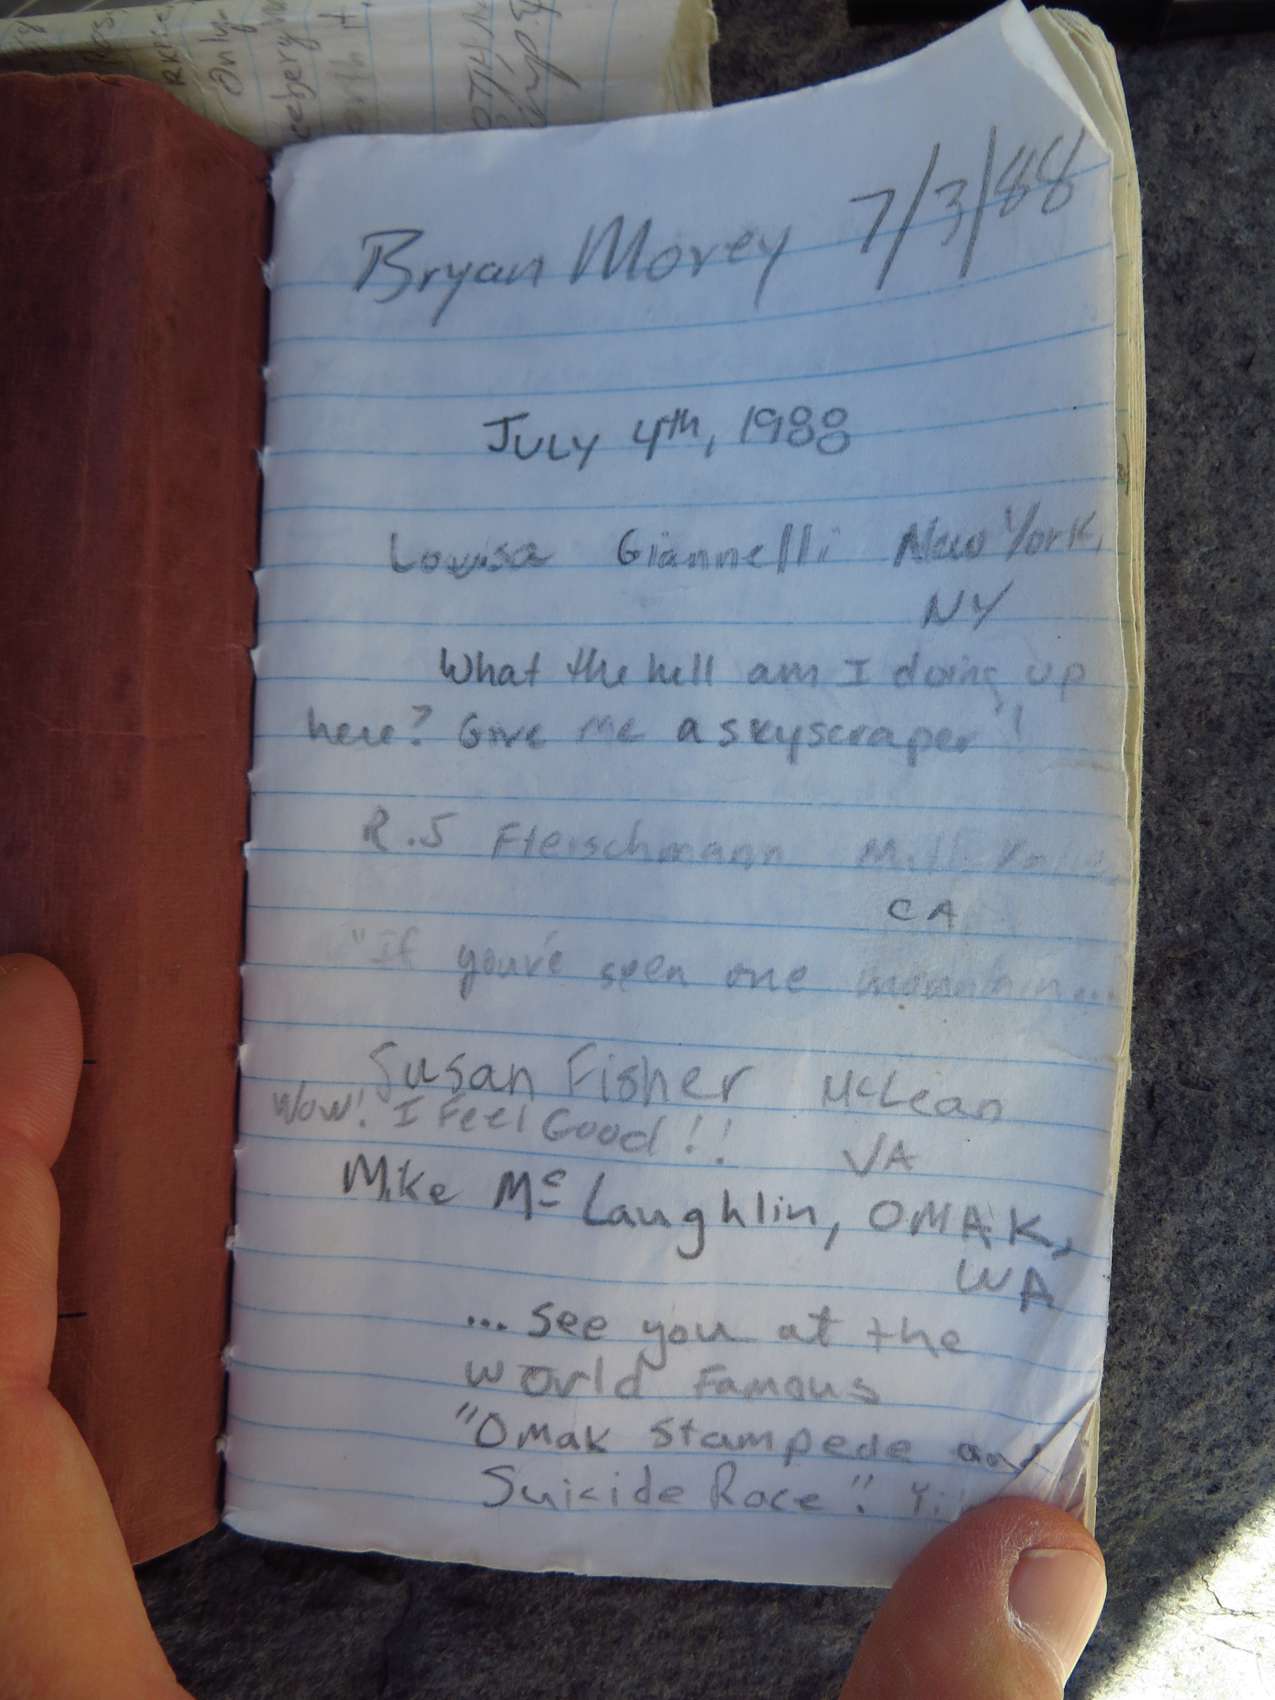 Bryan Morey 7/3/88
JULY 4th, 1988
Louisa Giannelli New York,
NY
What the hell am I doing up
here? Give me a skyscraper!
R.S Fleischmann Mill Valley
CA
"If you've seen one mountain...
Susan Fisher McLean
Wow! I Feel Good!! VA
Mike McLaughlin, OMAK,
WA
... see you at the
World Famous
"Omak Stampede and
Suicide Race".